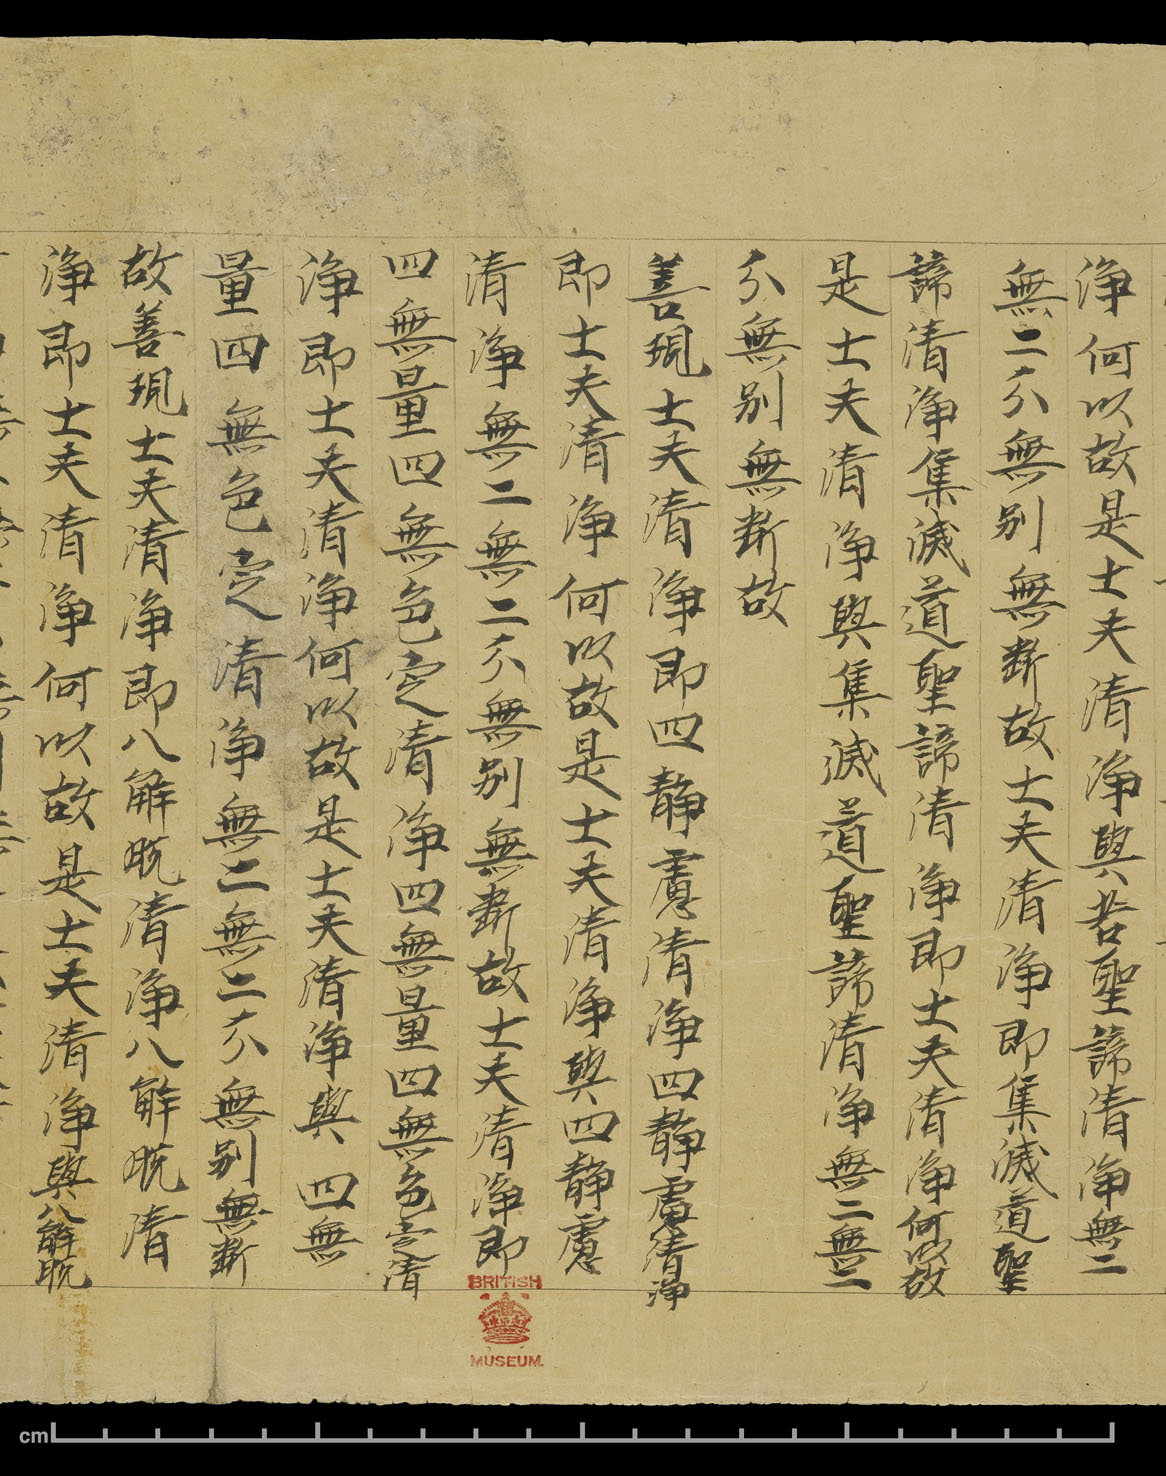 淨何以故是士夫清淨與苦聖諦清淨無二
無二分無別無斷故士夫清淨即集滅道聖
諦清淨集滅道聖諦清淨即士夫清淨何以故
是士夫清淨與集滅道聖諦清淨無二無二
分無別無斷故
善現士夫清淨即四靜慮清淨四靜慮清淨
即士夫清淨何以故是士夫清淨與四靜慮
清淨無二無二分無別無斷故士夫清淨即
四無量四無色定清淨四無量四無色定清
淨即士夫清淨何以故是士夫清淨與四無
量四無色定清淨無二無二分無別無斷
故善現士夫清淨即八解脫清淨八解脫清
淨即士夫清淨何以故是士夫清淨與八解脫
BRITISH
MUSEUM.
cm